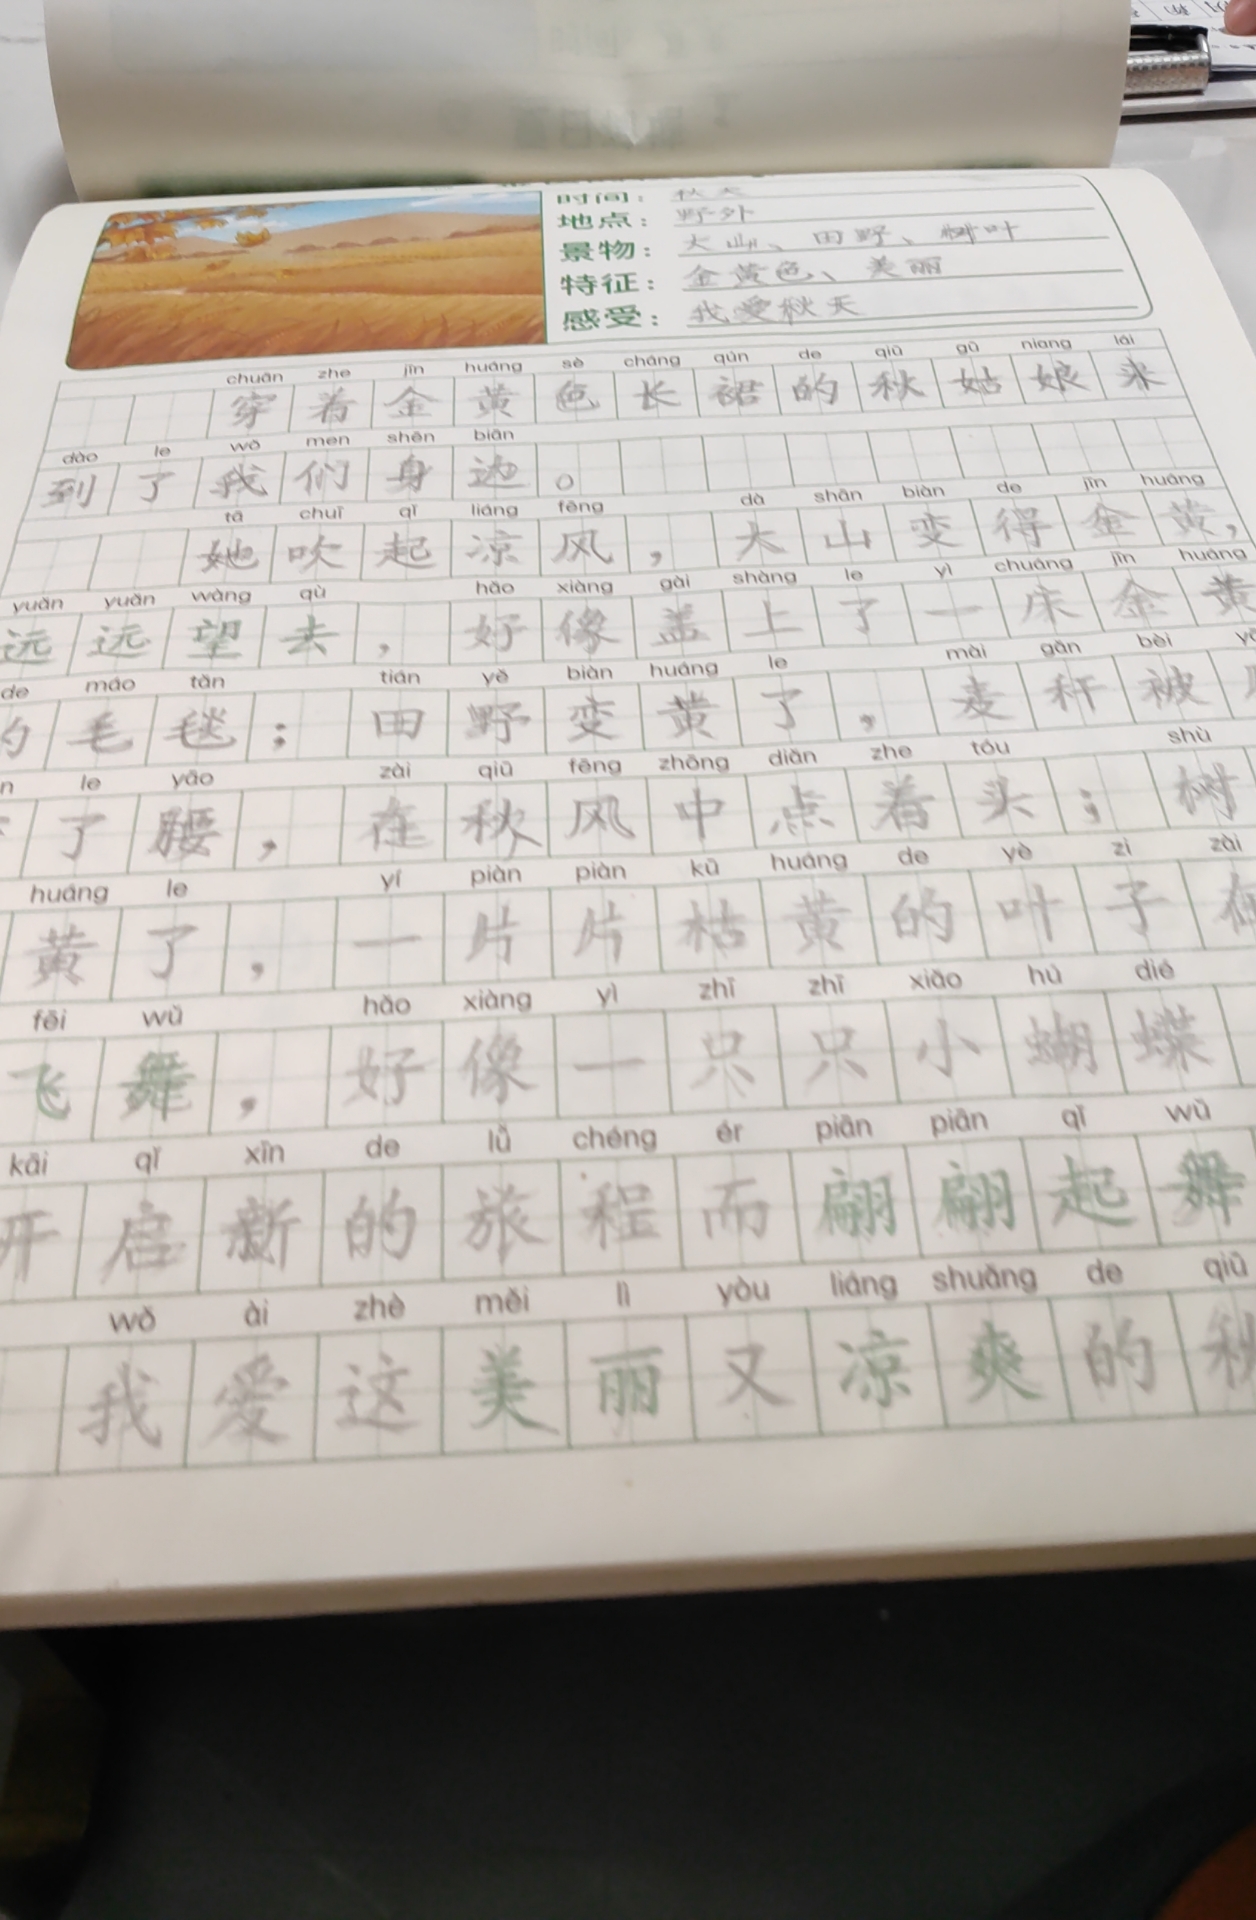 时间：秋天
地点：野外
景物：大山、田野、树叶
特征：金黄色、美丽
感受：我爱秋天
chuān zhe jīn huáng sè cháng qún de qiū gū niang lái
穿着金黄色长裙的秋姑娘来
dào le wǒ men shēn biān
到了我们身边。
tā chuī qǐ liáng fēng dà shān biàn de jīn huáng
她吹起凉风，大山变得金黄，
yuǎn yuǎn wàng qù hǎo xiàng gài shàng le yì chuáng jīn huáng
远远望去，好像盖上了一床金黄
de máo tǎn tián yě biàn huáng le mài gǎn bèi
的毛毯；田野变黄了，麦秆被
le yāo zài qiū fēng zhōng diǎn zhe tóu shù
了腰，在秋风中点着头；树
huáng le yí piàn piàn kū huáng de yè zi zài
黄了，一片片枯黄的叶子在
fēi wǔ hǎo xiàng yì zhī zhī xiǎo hú dié
飞舞，好像一只只小蝴蝶
kāi qǐ xīn de lǚ chéng ér piān piān qǐ wǔ
开启新的旅程而翩翩起舞
wǒ ài zhè měi lì yòu liáng shuǎng de qiū
我爱这美丽又凉爽的秋